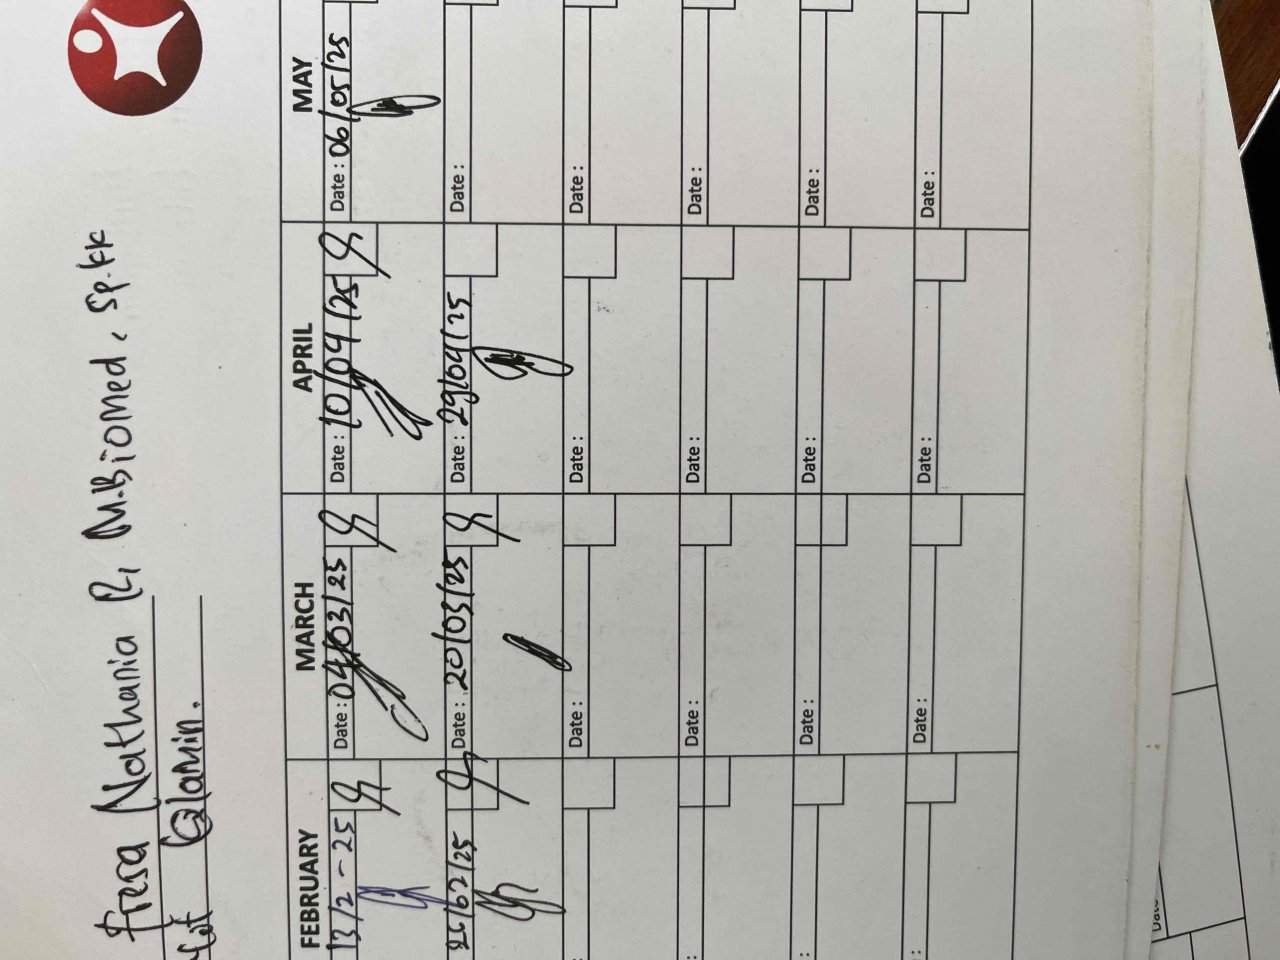 Fresa Nathania R, M.Biomed, Sp.KK
@lamin.
FEBRUARY MARCH APRIL MAY
13/2-25 Date : 04/03/25 Date : 10/04/25 Date : 06/05/25
/25 Date : 20/03/25 Date : 29/04/25 Date :
: Date : Date : Date :
: Date : Date : Date :
: Date : Date : Date :
: Date : Date : Date :
Date